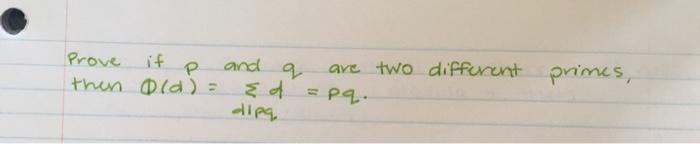 Prove if p and q are two different primes,
then Φ(d) = Σ d = pq.
d|pq